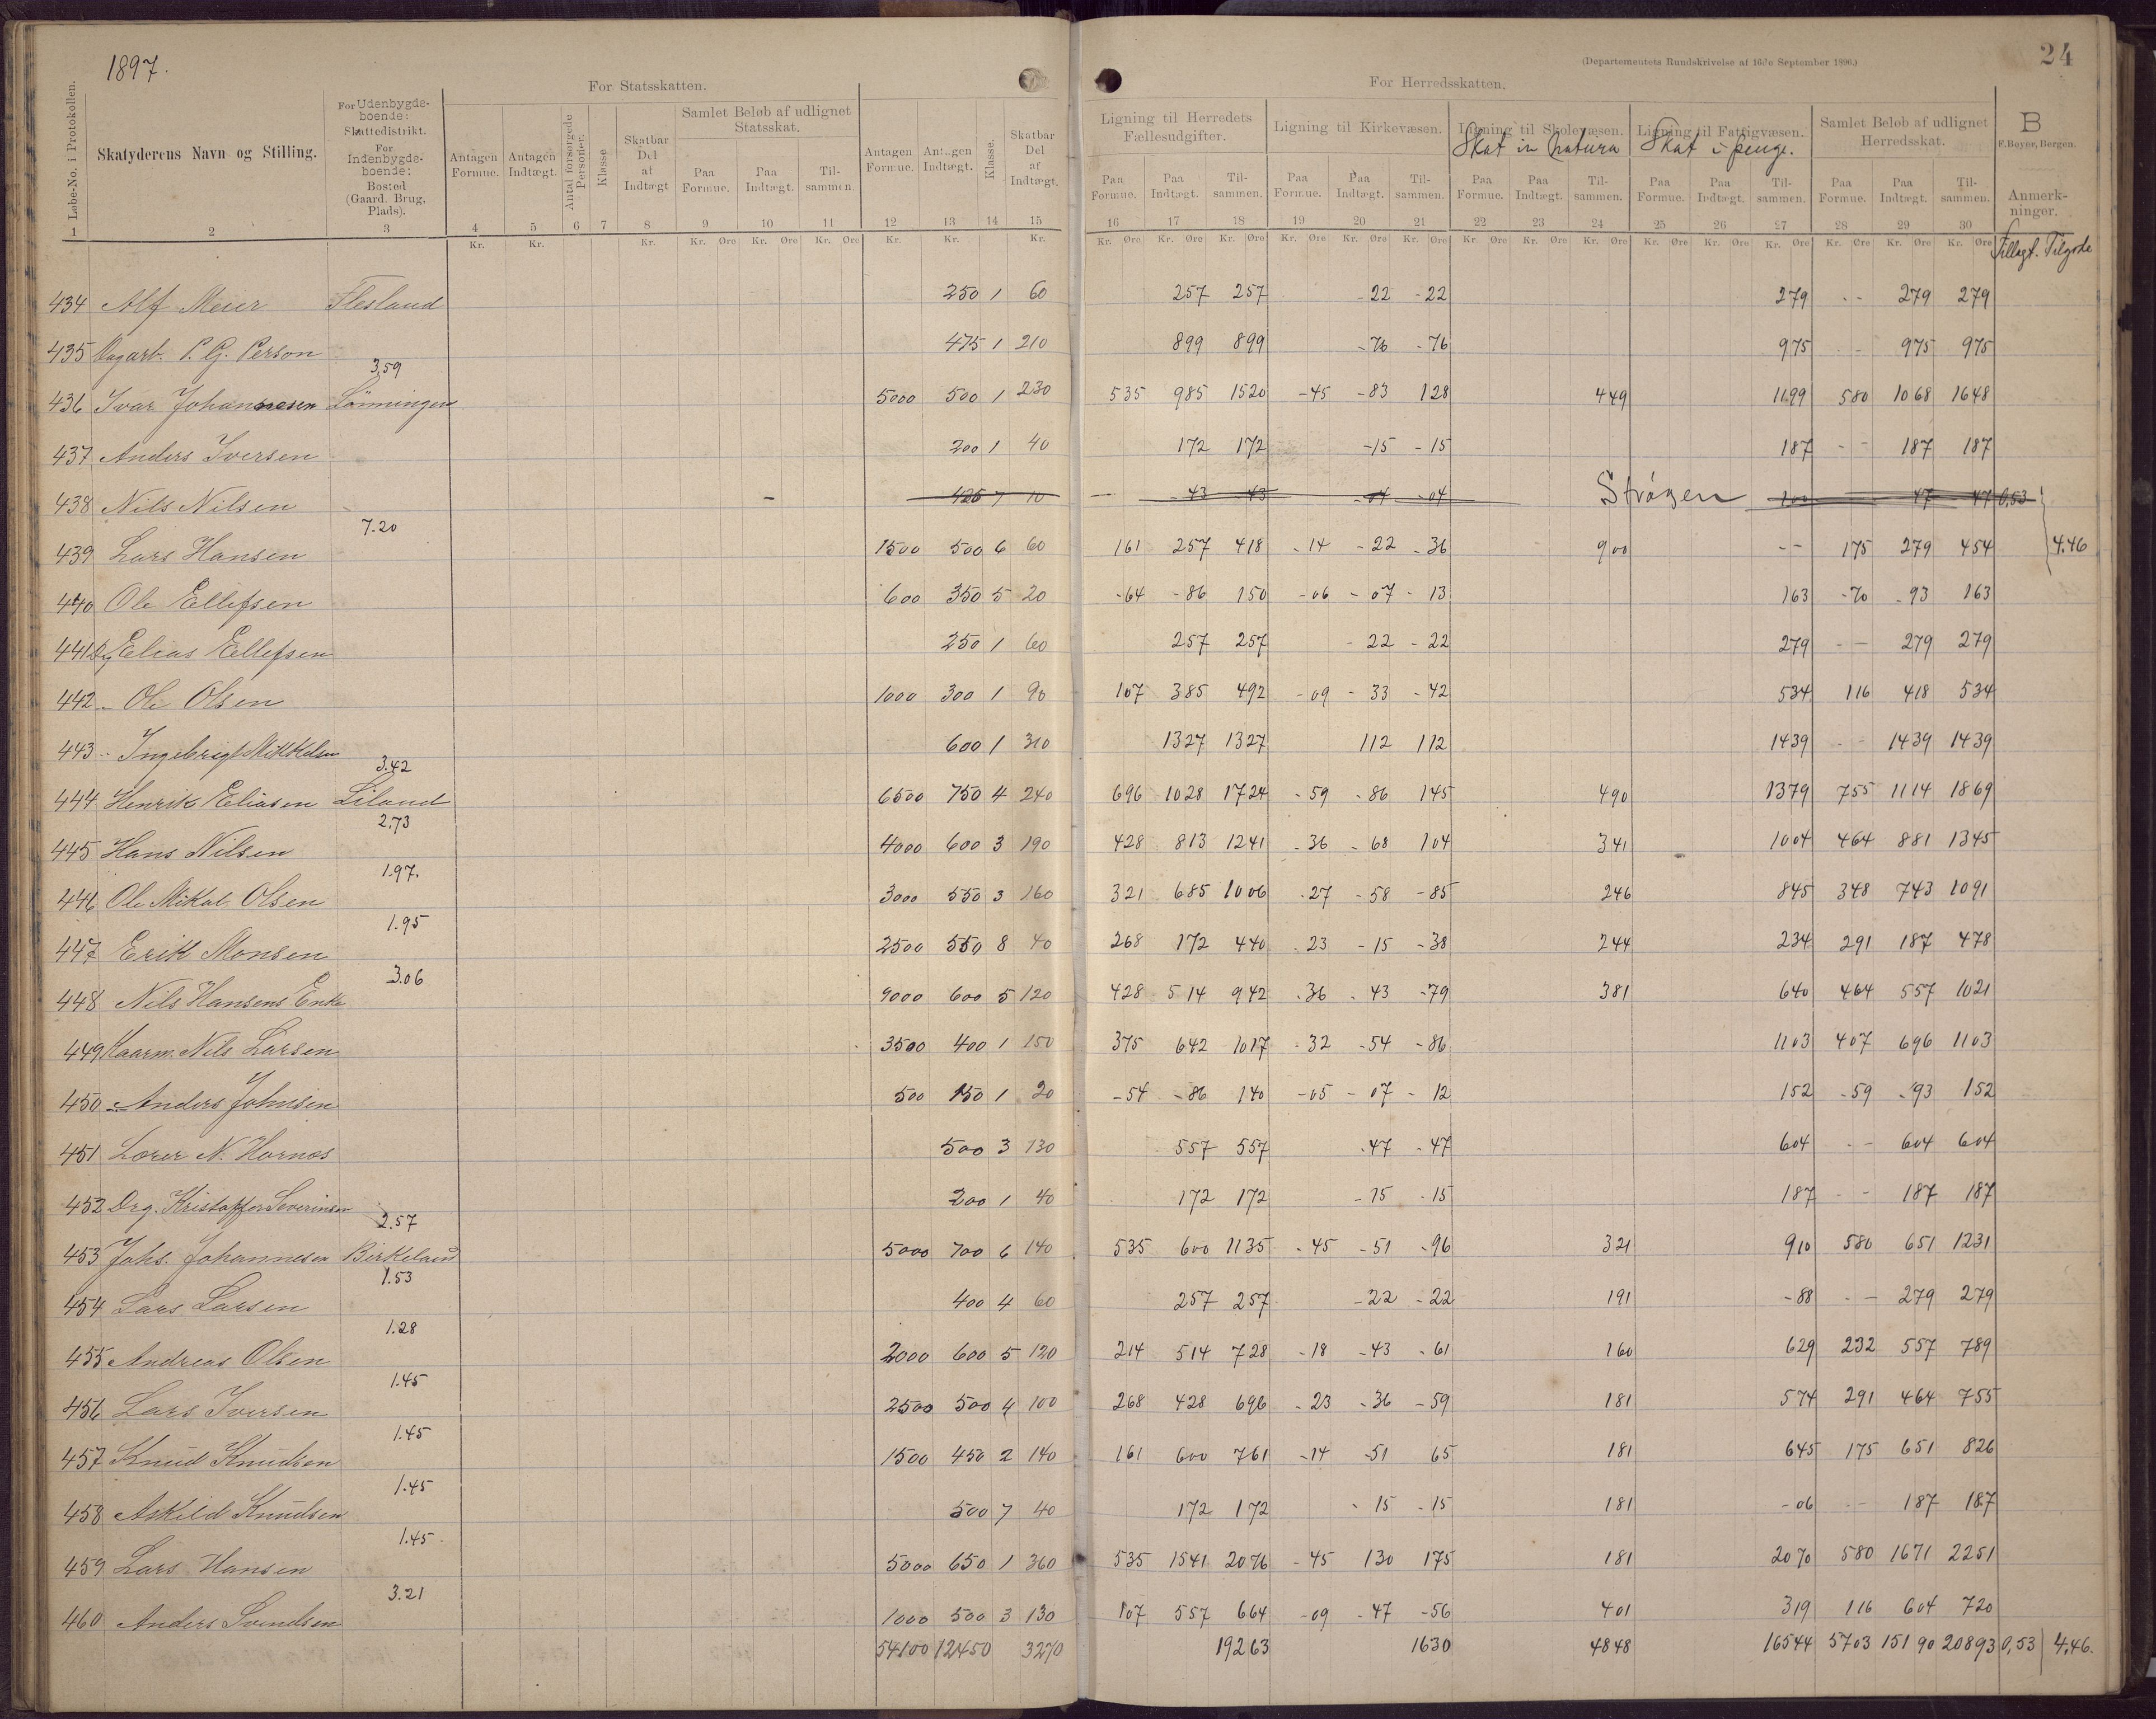 1897.
24
(Departementets Rundskrivelse af 16de September 1896.)
For Statsskatten.
For Herredsskatten.
Løbe-No. i Protokollen.
Skatyderens Navn og Stilling.
For Udenbygdsboende: Skattedistrikt. For Indenbygdsboende: Bosted (Gaard. Brug, Plads).
Antagen Formue. Antagen Indtægt. Antal forsørgede Personer. Klasse Skatbar Del af Indtægt
Samlet Beløb af udlignet Statsskat.
Paa Formue. Paa Indtægt. Tilsammen.
Antagen Formue. Antagen Indtægt. Klasse. Skatbar Del af Indtægt.
Ligning til Herredets Fællesudgifter. Ligning til Kirkevæsen. Ligning til Skolevæsen. Ligning til Fattigvæsen. Samlet Beløb af udlignet Herredsskat.
Skat in natura Skat i penge.
B
F. Beyer, Bergen.
Anmerkninger.
Paa Formue. Paa Indtægt. Tilsammen. Paa Formue. Paa Indtægt. Tilsammen. Paa Formue. Paa Indtægt. Tilsammen. Paa Formue. Paa Indtægt. Tilsammen. Paa Formue. Paa Indtægt. Tilsammen.
1 2 3 4 5 6 7 8 9 10 11 12 13 14 15 16 17 18 19 20 21 22 23 24 25 26 27 28 29 30
Kr. Kr. Kr. Kr. Øre Kr. Øre Kr. Øre Kr. Kr. Kr. Kr. Øre Kr. Øre Kr. Øre Kr. Øre Kr. Øre Kr. Øre Kr. Øre Kr. Øre Kr. Øre Kr. Øre Kr. Øre Kr. Øre Kr. Øre Kr. Øre Kr. Øre
Tillagt. Tilgode
434 Alf Meier Flesland 250 1 60 257 257 - 22 - 22 279 - - 279 279
435 P. G. Person 475 1 210 899 899 - 76 - 76 975 - - 975 975
3,59
436 Ivar Johannesen Lönningen 5000 500 1 230 535 985 1520 - 45 - 83 128 449 1199 580 1068 1648
437 Anders Iversen 200 1 40 172 172 - 15 - 15 187 - - 187 187
438 Nils Nilsen - 425 7 10 - 43 43 - 04 - 04 Strögen 100 47 47 0,53
7.20
439 Lars Hansen 1500 500 6 60 161 257 418 - 14 - 22 - 36 900 - - 175 279 454 4.46
440 Ole Ellefsen 600 350 5 20 - 64 - 86 150 - 06 - 07 - 13 163 - 70 - 93 163
441 Dg Elias Ellefsen 250 1 60 257 257 - 22 - 22 279 - - 279 279
442 - Ole Olsen 1000 300 1 90 107 385 492 - 09 - 33 - 42 534 116 418 534
443 - Ingebrigt Mikkelsen 600 1 310 1327 1327 112 112 1439 - - 1439 1439
3.42
444 Henrik Eliasen Liland 6500 750 4 240 696 1028 1724 - 59 - 86 145 490 1379 755 1114 1869
2,73
445 Hans Nilsen 4000 600 3 190 428 813 1241 - 36 - 68 104 341 1004 464 881 1345
1.97.
446 Ole Mikal Olsen 3000 550 3 160 321 685 1006 - 27 - 58 - 85 246 845 348 743 1091
1.95
447 Erik Monsen 2500 550 8 40 268 172 440 - 23 - 15 - 38 244 234 291 187 478
3.06
448 Nils Hansens Enke 9000 600 5 120 428 514 942 - 36 - 43 - 79 381 640 464 557 1021
449 Kaarm. Nils Larsen 3500 400 1 150 375 642 1017 - 32 - 54 - 86 1103 407 696 1103
450 - Anders Johnsen 500 150 1 20 - 54 - 86 140 - 05 - 07 - 12 152 - 59 - 93 152
451 Lærer N. Hornes 500 3 130 557 557 - 47 - 47 604 - - 604 604
452 Drg. Kristoffer Severinsen 200 1 40 172 172 - 15 - 15 187 - - 187 187
2.57
453 Johs. Johannesen Birkeland 5000 700 6 140 535 600 1135 - 45 - 51 - 96 321 910 580 651 1231
1.53
454 Lars Larsen 400 4 60 257 257 - 22 - 22 191 - 88 - - 279 279
1.28
455 Andreas Olsen 2000 600 5 120 214 514 728 - 18 - 43 - 61 160 629 232 557 789
1.45
456 Lars Iversen 2500 500 4 100 268 428 696 - 23 - 36 - 59 181 574 291 464 755
1.45
457 Knud Knudsen 1500 450 2 140 161 600 761 - 14 - 51 65 181 645 175 651 826
1.45
458 Askild Knudsen 500 7 40 172 172 - 15 - 15 181 - 06 - - 187 187
1.45
459 Lars Hansen 5000 650 1 360 535 1541 2076 - 45 130 175 181 2070 580 1671 2251
3.21
460 Anders Svendsen 1000 500 3 130 107 557 664 - 09 - 47 - 56 401 319 116 604 720
54100 12450 3270 19263 1630 4848 16544 5703 15190 20893 0,53 4.46.